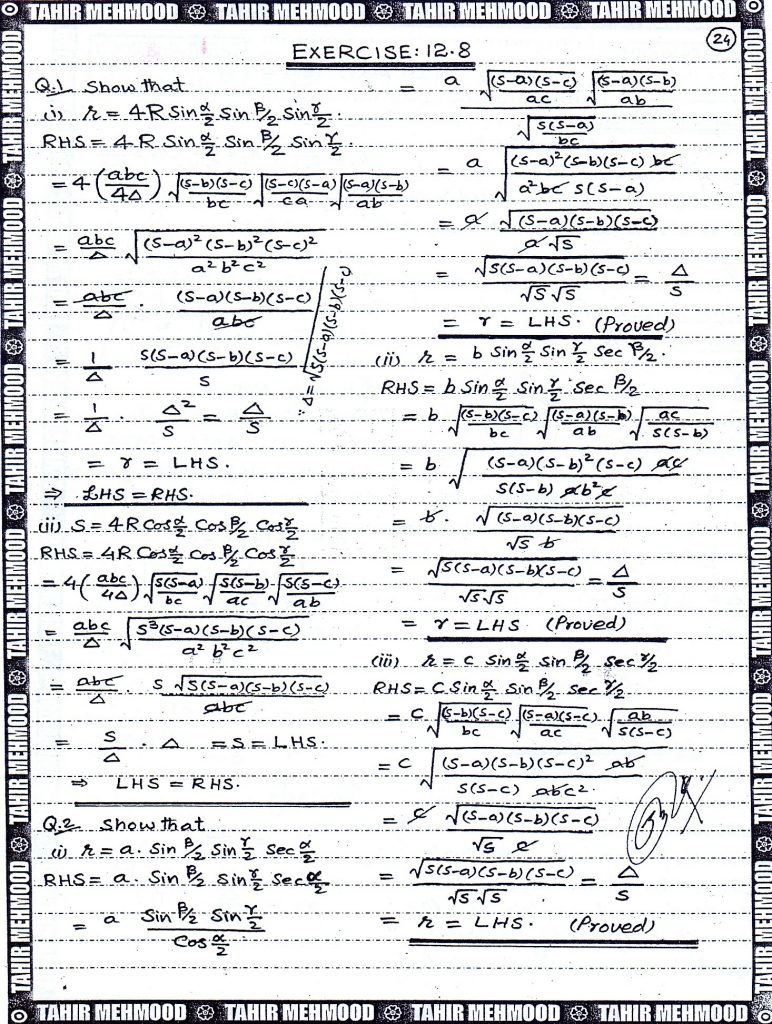 TAHIR MEHMOOD TAHIR MEHMOOD TAHIR MEHMOOD TAHIR MEHMOOD
24
EXERCISE: 12.8
Q.1 Show that
(i) r = 4R Sin α/2 Sin β/2 Sin γ/2.
RHS = 4R Sin α/2 Sin β/2 Sin γ/2
= 4(abc/4Δ) √((s-b)(s-c)/bc) √((s-c)(s-a)/ca) √((s-a)(s-b)/ab)
= abc/Δ √((s-a)²(s-b)²(s-c)²/a²b²c²)
= abc/Δ · (s-a)(s-b)(s-c)/abc
= 1/Δ s(s-a)(s-b)(s-c)/s
∵ Δ = √s(s-a)(s-b)(s-c)
= 1/Δ · Δ²/s = Δ/s
= r = LHS.
⇒ LHS = RHS.
(ii) S = 4R Cos α/2 Cos β/2 Cos γ/2
RHS = 4R Cos α/2 Cos β/2 Cos γ/2
= 4(abc/4Δ) √(s(s-a)/bc) √(s(s-b)/ac) √(s(s-c)/ab)
= abc/Δ √(s³(s-a)(s-b)(s-c)/a²b²c²)
= abc/Δ · s√(s(s-a)(s-b)(s-c))/abc
= s/Δ · Δ = S = LHS.
⇒ LHS = RHS.
Q.2 Show that
(i) r = a. Sin β/2 Sin γ/2 Sec α/2
RHS = a. Sin β/2 Sin γ/2 Sec α/2
= a Sin β/2 Sin γ/2 / Cos α/2
= a √((s-a)(s-c)/ac) √((s-a)(s-b)/ab) / √(s(s-a)/bc)
= a √((s-a)²(s-b)(s-c) bc/a²bc s(s-a))
= a √((s-a)(s-b)(s-c))/a√s
= √(s(s-a)(s-b)(s-c))/√s√s = Δ/s
= r = LHS. (Proved)
(ii) r = b Sin α/2 Sin γ/2 Sec β/2.
RHS = b Sin α/2 Sin γ/2 Sec β/2
= b √((s-b)(s-c)/bc) √((s-a)(s-b)/ab) √(ac/s(s-b))
= b √((s-a)(s-b)²(s-c) ac/s(s-b) ab²c)
= b. √((s-a)(s-b)(s-c))/√s b
= √(s(s-a)(s-b)(s-c))/√s√s = Δ/s
= r = LHS (Proved)
(iii) r = c Sin α/2 Sin β/2 Sec γ/2
RHS = c Sin α/2 Sin β/2 Sec γ/2
= c √((s-b)(s-c)/bc) √((s-a)(s-c)/ac) √(ab/s(s-c))
= c √((s-a)(s-b)(s-c)² ab/s(s-c) abc².)
= c √((s-a)(s-b)(s-c))/√s c
= √(s(s-a)(s-b)(s-c))/√s√s = Δ/s
= r = LHS. (Proved)
TAHIR MEHMOOD TAHIR MEHMOOD TAHIR MEHMOOD TAHIR MEHMOOD
TAHIR MEHMOOD TAHIR MEHMOOD TAHIR MEHMOOD TAHIR MEHMOOD TAHIR MEHMOOD TAHIR MEHMOOD
TAHIR MEHMOOD TAHIR MEHMOOD TAHIR MEHMOOD TAHIR MEHMOOD TAHIR MEHMOOD TAHIR MEHMOOD